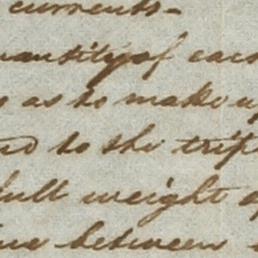 currents -
uantity of eac
s as to make u
to the trip
full weight o
between